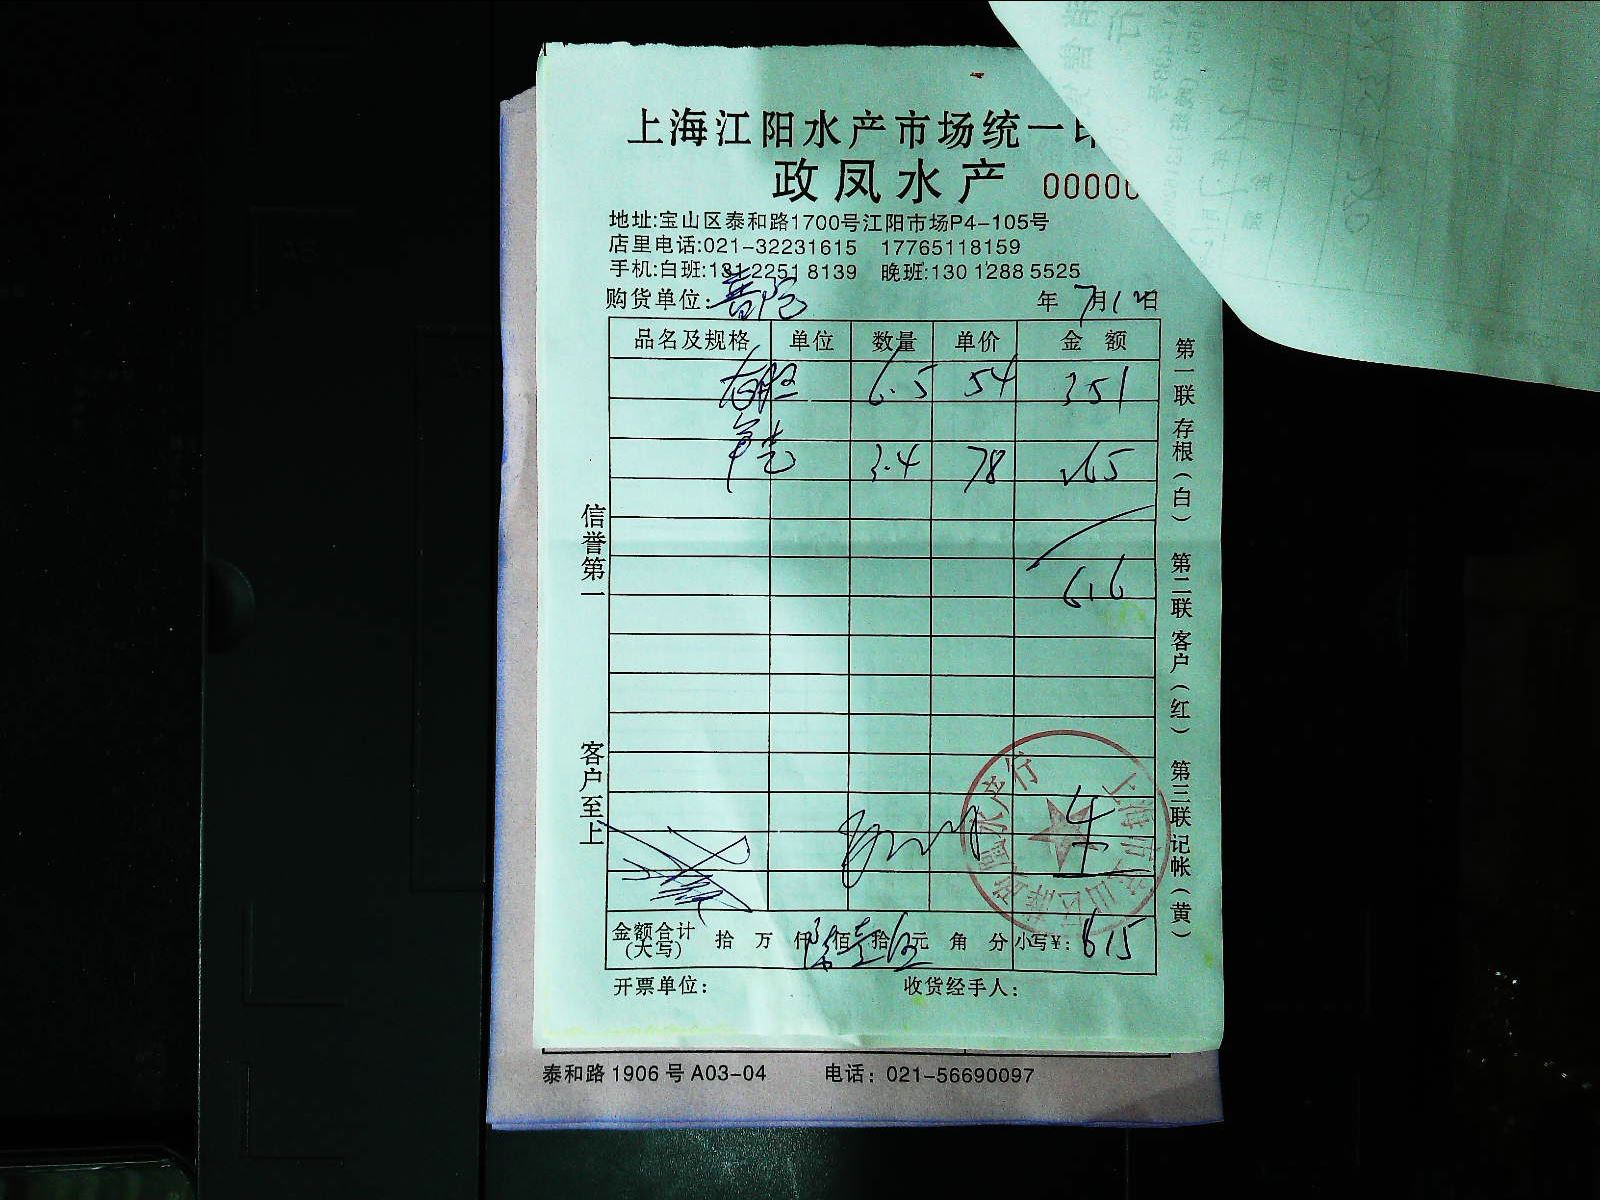 上海江阳水产市场统一
政凤水产 00000
地址:宝山区泰和路1700号江阳市场P4-105号
店里电话:021-32231615 17765118159
手机:白班:131 2251 8139 晚班:130 1288 5525
购货单位: 普陀 年 7月12日
品名及规格 单位 数量 单价 金额
6.5 54 351
3.4 78 265
616
信誉第一
客户至上
第一联 存根(白) 第二联 客户(红) 第三联 记帐(黄)
金额合计(大写) 拾 万 仟 佰 拾 元 角 分 小写¥: 615
开票单位: 收货经手人:
泰和路 1906 号 A03-04 电话: 021-56690097